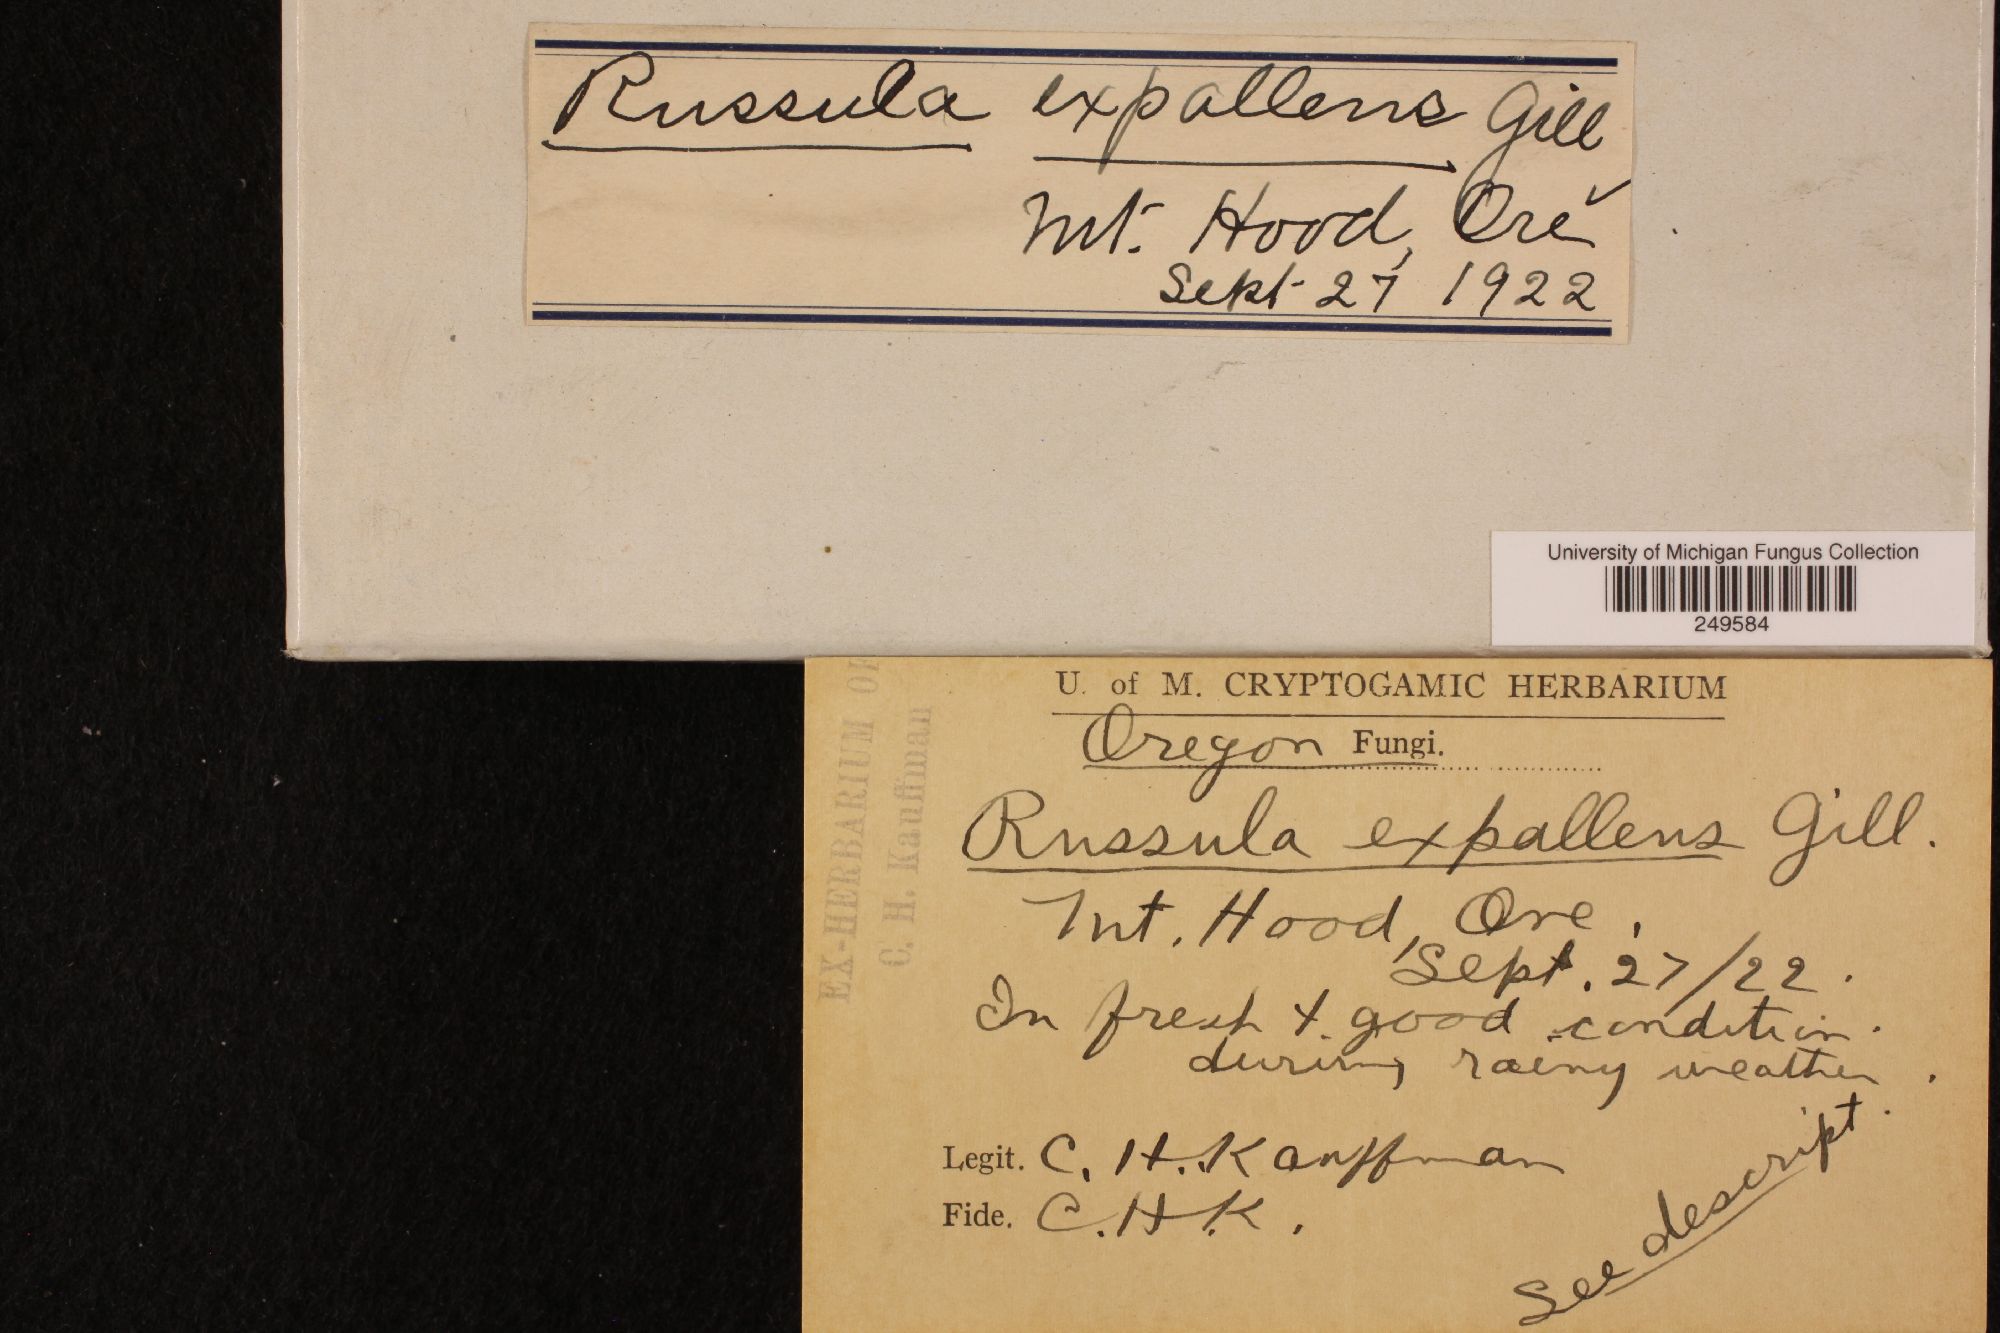 Russula expallens Gill
Mt. Hood, Ore
Sept 27 1922
University of Michigan Fungus Collection
249584
U. of M. CRYPTOGAMIC HERBARIUM
Oregon Fungi.
Russula expallens Gill.
Mt. Hood, Ore.
Sept. 27/22.
In fresh & good condition
during rainy weather.
Legit. C. H. Kauffman
Fide. C.H.K.
See descript.
EX-HERBARIUM OF
C. H. Kauffman